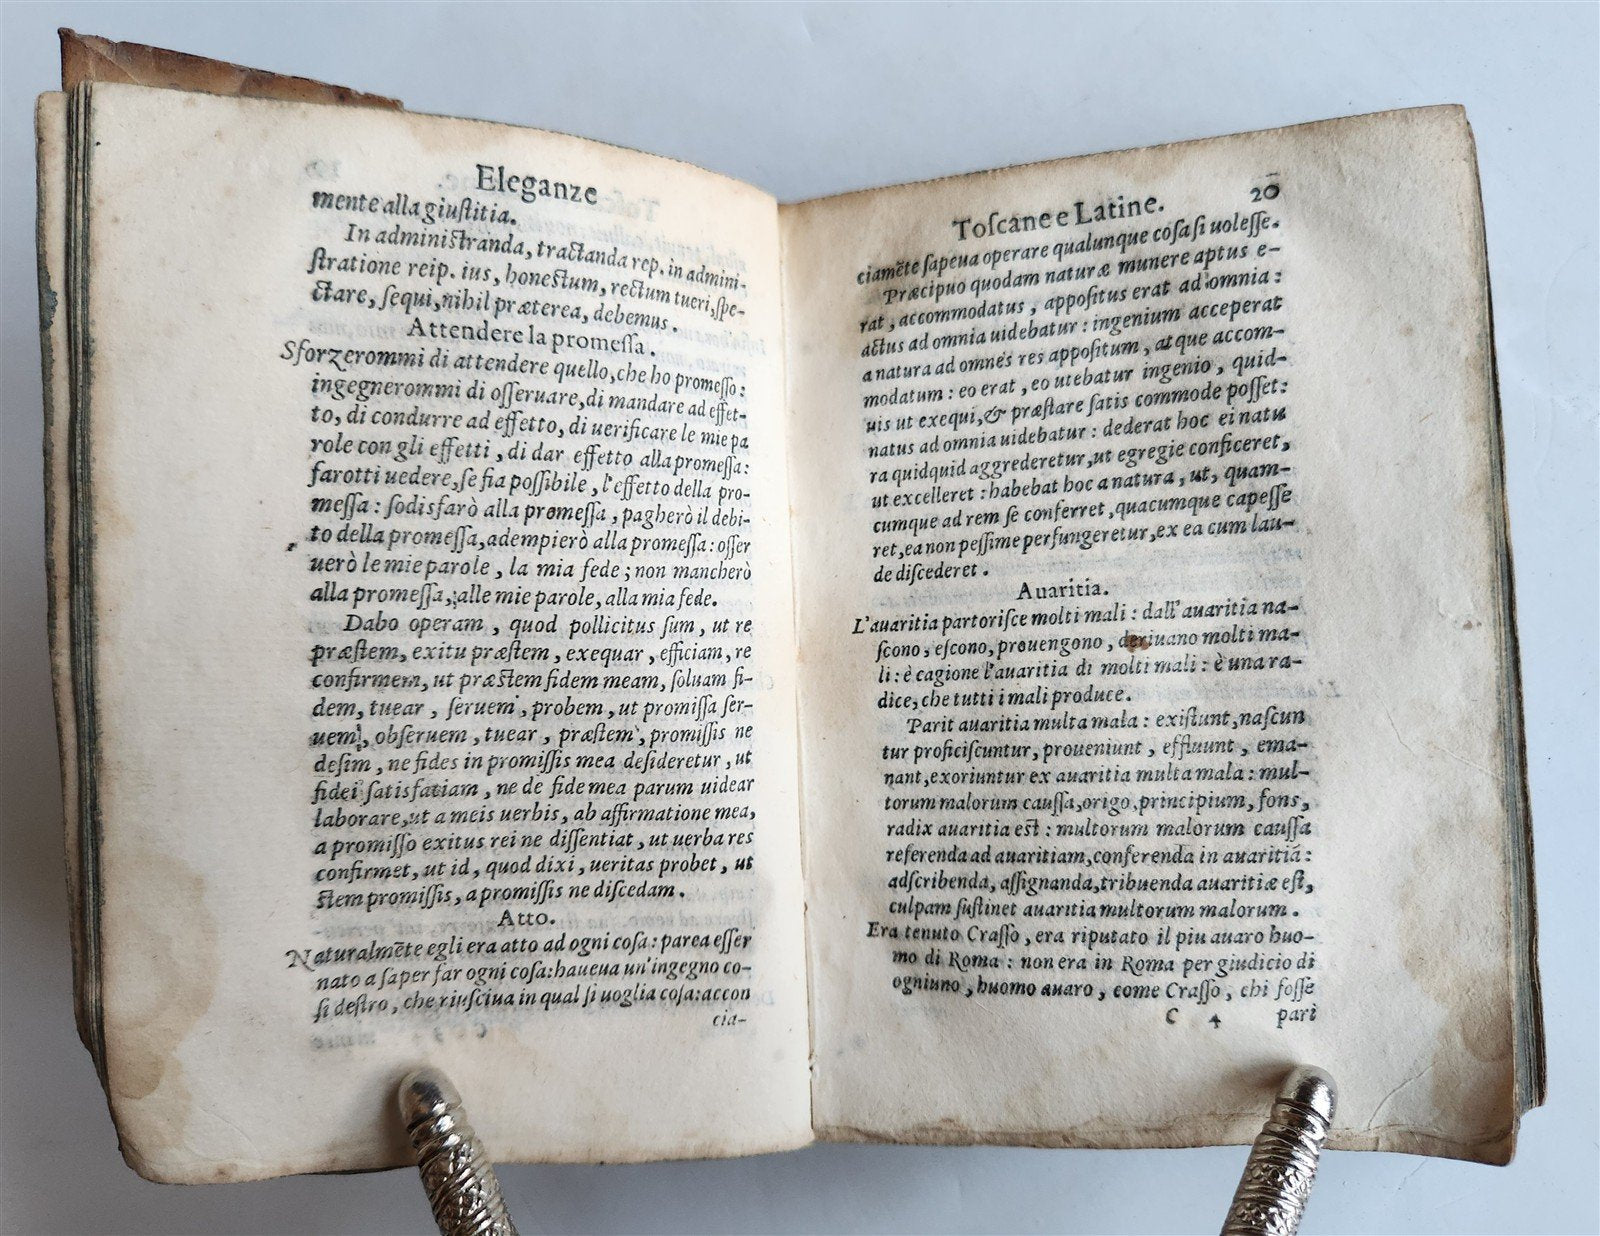 Eleganze
mente alla giuſtitia.
In administranda, tractanda rep. in admini-
ſtratione reip. ius, honestum, rectum tueri, ſpe-
ctare, ſequi, nihil præterea, debemus.
Attendere la promeſſa.
Sforzerommi di attendere quello, che ho promeſſo:
ingegnerommi di oſſeruare, di mandare ad effet-
to, di condurre ad effetto, di uerificare le mie pa
role con gli effetti, di dar effetto alla promeſſa:
farotti uedere, ſe fia poſſibile, l'effetto della pro-
meſſa: ſodisfarò alla promeſſa, pagherò il debi-
to della promeſſa, adempierò alla promeſſa: oſſer
uerò le mie parole, la mia fede; non mancherò
alla promeſſa, alle mie parole, alla mia fede.
Dabo operam, quod pollicitus ſum, ut re
præstem, exitu præstem, exequar, efficiam, re
confirmem, ut præstem fidem meam, ſoluam fi-
dem, tuear, ſeruem, probem, ut promiſſa ſer-
uem, obſeruem, tuear, præstem, promiſſis ne
deſim, ne fides in promiſſis mea deſideretur, ut
fidei ſatisfaciam, ne de fide mea parum uidear
laborare, ut a meis uerbis, ab affirmatione mea,
a promiſſo exitus rei ne diſſentiat, ut uerba res
confirmet, ut id, quod dixi, ueritas probet, ut
stem promiſſis, a promiſſis ne diſcedam.
Atto.
Naturalmẽte egli era atto ad ogni coſa: parea eſſer
nato a ſaper far ogni coſa: haueua un'ingegno co-
ſi destro, che riuſciua in qual ſi uoglia coſa: accon
cia-
Toſcane e Latine. 20
ciamẽte ſapeua operare qualunque coſa ſi uoleſſe.
Præcipuo quodam naturæ munere aptus e-
rat, accommodatus, appoſitus erat ad omnia:
actus ad omnia uidebatur: ingenium acceperat
a natura ad omnes res appoſitum, atque accom-
modatum: eo erat, eo utebatur ingenio, quid-
uis ut exequi, & præſtare ſatis commode poſſet:
natus ad omnia uidebatur: dederat hoc ei natu
ra quidquid aggrederetur, ut egregie conficeret,
ut excelleret: habebat hoc a natura, ut, quam-
cumque ad rem ſe conferret, quacumque capeſſe
ret, ea non peſſime perfungeretur, ex ea cum lau-
de diſcederet.
Auaritia.
L'auaritia partoriſce molti mali: dall'auaritia na-
ſcono, eſcono, prouengono, deriuano molti ma-
li: è cagione l'auaritia di molti mali: è una ra-
dice, che tutti i mali produce.
Parit auaritia multa mala: exiſtunt, naſcun
tur proficiſcuntur, proueniunt, effluunt, ema-
nant, exoriuntur ex auaritia multa mala: mul-
torum malorum cauſſa, origo, principium, fons,
radix auaritia est: multorum malorum cauſſa
referenda ad auaritiam, conferenda in auaritiã:
adſcribenda, aſſignanda, tribuenda auaritiæ eſt,
culpam ſuſtinet auaritia multorum malorum.
Era tenuto Craſſo, era riputato il piu auaro huo-
mo di Roma: non era in Roma per giudicio di
ogniuno, huomo auaro, come Craſſo, chi foſſe
C 4 pari